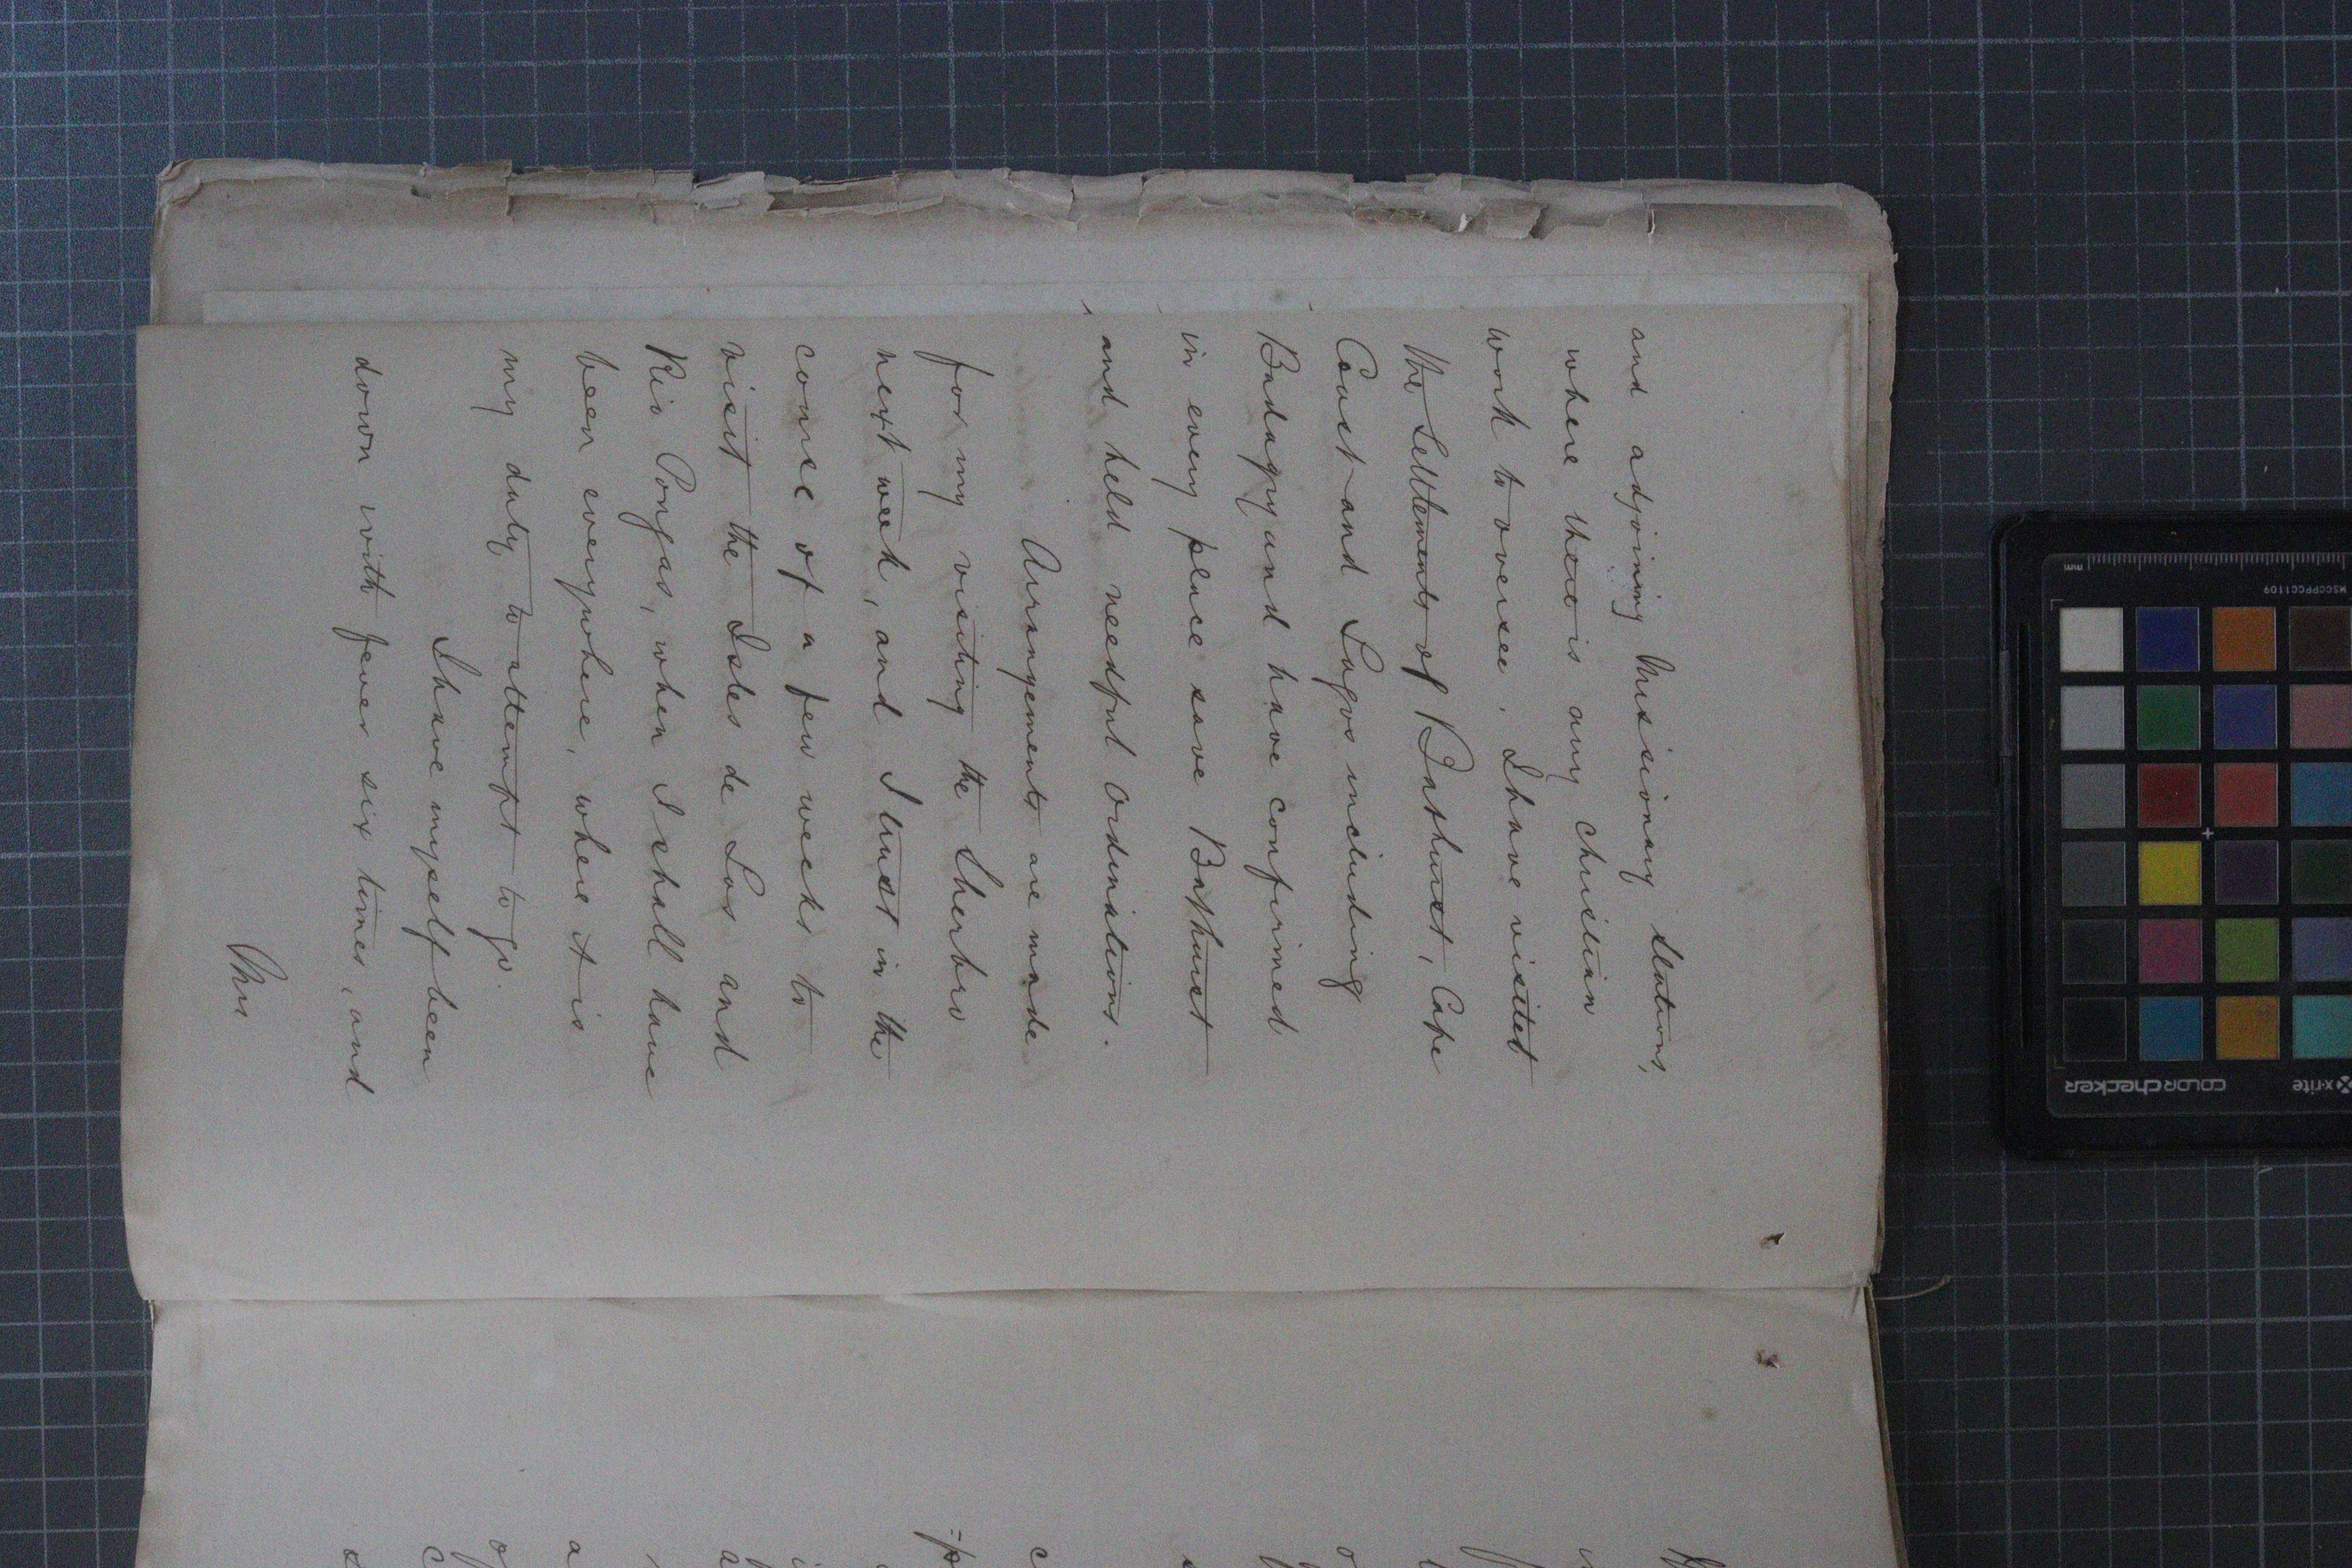 and adjoining Missionary Stations,
where there is any Christian
work to oversee. I have visited
the Settlements of Bathurst, Cape
Coast and Lagos including
Badagry and have confirmed
in every place save Bathurst
and held needful Ordinations.
Arrangements are made
for my visiting the Sherbro
next week, and I trust in the
course of a few weeks to
visit the Isles de Los and
Rio Pongas, when I shall have
been everywhere, where it is
my duty to attempt to go.
I have myself been
down with fever six times, and
Mrs
mm
MSCCPPCC1109
colorchecker
x-rite